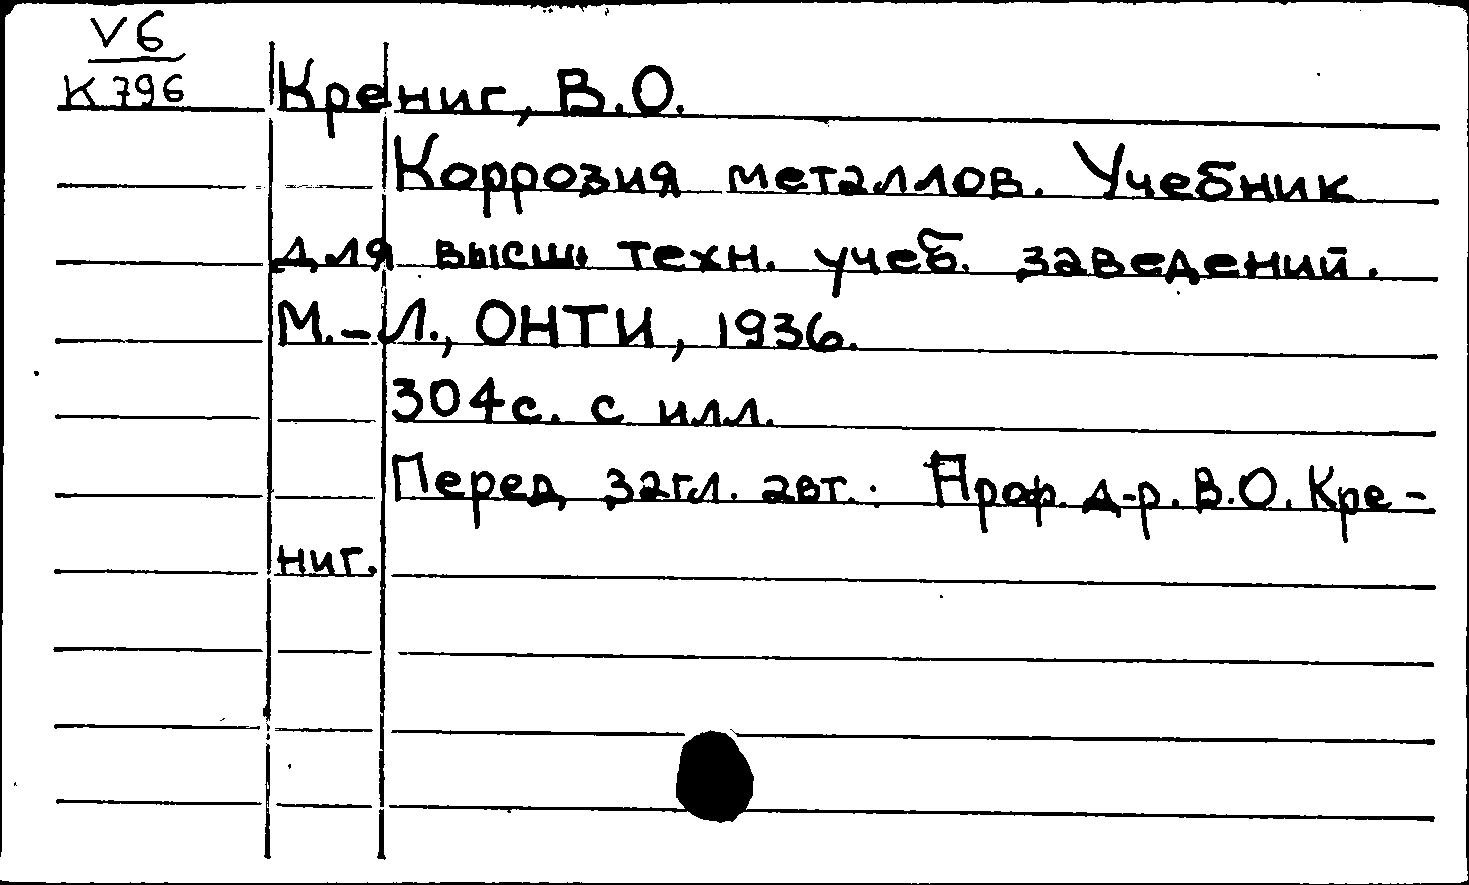 V6
К796
Крениг, В.О.
Коррозия металлов. Учебник
для высш. техн. учеб. заведений.
М.-Л., ОНТИ, 1936.
304с. с илл.
Перед загл. авт.: Проф. д-р. В.О. Кре-
ниг.